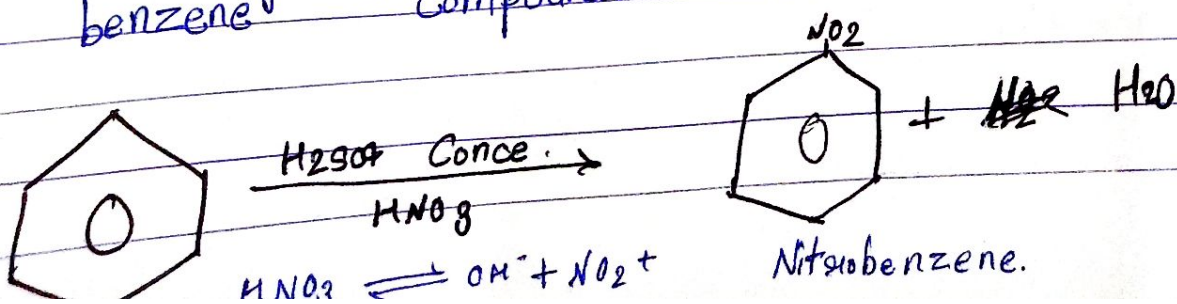 benzene
NO2
H2SO4 Conce. + H2O
HNO3
HNO3 ⇌ OH⁻ + NO2⁺ Nitrobenzene.